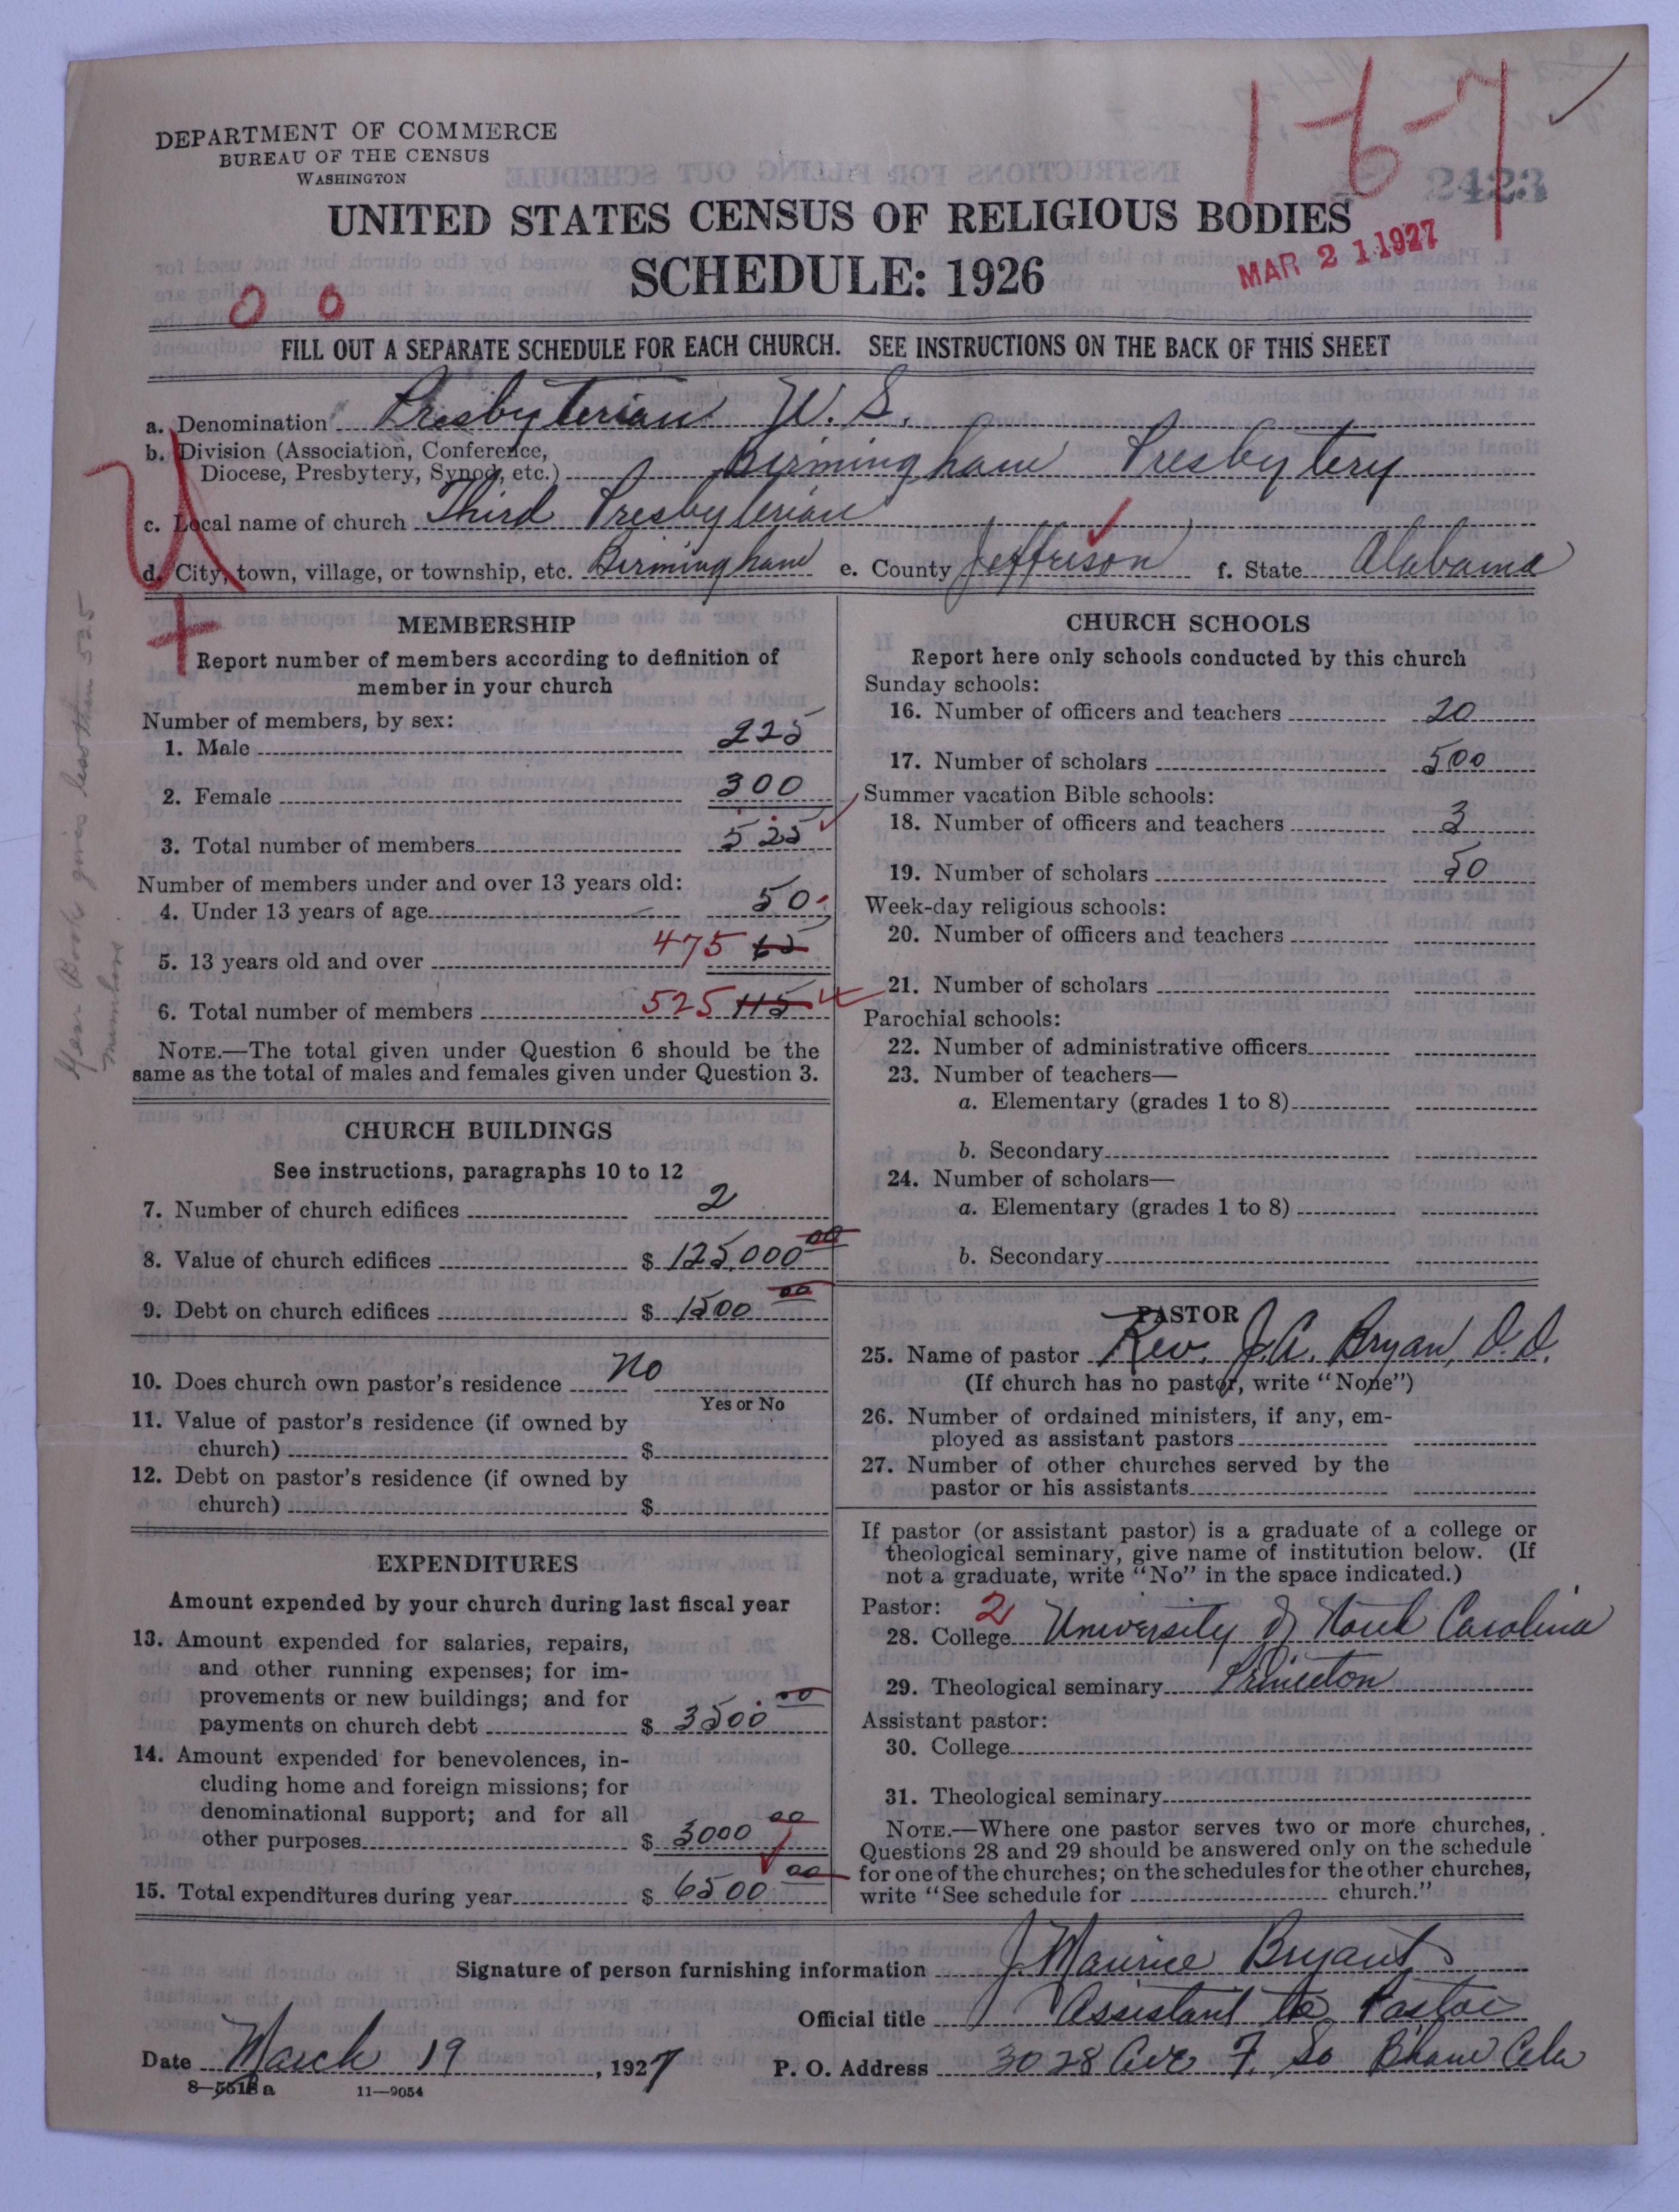 1-6-7
2423
DEPARTMENT OF COMMERCE
BUREAU OF THE CENSUS
WASHINGTON
UNITED STATES CENSUS OF RELIGIOUS BODIES
SCHEDULE: 1926
MAR 21 1927
0 0
FILL OUT A SEPARATE SCHEDULE FOR EACH CHURCH. SEE INSTRUCTIONS ON THE BACK OF THIS SHEET
a. Denomination Presbyterian U. S.
b. Division (Association, Conference,
Diocese, Presbytery, Synod, etc.) Birmingham Presbytery
c. Local name of church Third Presbyterian
d. City, town, village, or township, etc. Birmingham e. County Jefferson f. State Alabama
Year Book gives less than 525
members
MEMBERSHIP
Report number of members according to definition of
member in your church
Number of members, by sex:
1. Male 225
2. Female 300
3. Total number of members 525
Number of members under and over 13 years old:
4. Under 13 years of age 50
5. 13 years old and over 475 65
6. Total number of members 525 115
NOTE.—The total given under Question 6 should be the
same as the total of males and females given under Question 3.
CHURCH BUILDINGS
See instructions, paragraphs 10 to 12
7. Number of church edifices 2
8. Value of church edifices $ 125,000 00
9. Debt on church edifices $ 1500 00
10. Does church own pastor's residence No
Yes or No
11. Value of pastor's residence (if owned by
church) $
12. Debt on pastor's residence (if owned by
church) $
EXPENDITURES
Amount expended by your church during last fiscal year
13. Amount expended for salaries, repairs,
and other running expenses; for im-
provements or new buildings; and for
payments on church debt $ 3500 00
14. Amount expended for benevolences, in-
cluding home and foreign missions; for
denominational support; and for all
other purposes $ 3000 00
15. Total expenditures during year $ 6500 00
CHURCH SCHOOLS
Report here only schools conducted by this church
Sunday schools:
16. Number of officers and teachers 20
17. Number of scholars 500
Summer vacation Bible schools:
18. Number of officers and teachers 3
19. Number of scholars 50
Week-day religious schools:
20. Number of officers and teachers
21. Number of scholars
Parochial schools:
22. Number of administrative officers
23. Number of teachers—
a. Elementary (grades 1 to 8)
b. Secondary
24. Number of scholars—
a. Elementary (grades 1 to 8)
b. Secondary
PASTOR
25. Name of pastor Rev. J. A. Bryan, D. D.
(If church has no pastor, write "None")
26. Number of ordained ministers, if any, em-
ployed as assistant pastors
27. Number of other churches served by the
pastor or his assistants
If pastor (or assistant pastor) is a graduate of a college or
theological seminary, give name of institution below. (If
not a graduate, write "No" in the space indicated.)
Pastor: 2
28. College University of North Carolina
29. Theological seminary Princeton
Assistant pastor:
30. College
31. Theological seminary
NOTE.—Where one pastor serves two or more churches,
Questions 28 and 29 should be answered only on the schedule
for one of the churches; on the schedules for the other churches,
write "See schedule for church."
Signature of person furnishing information J. Maurice Bryant
Official title Assistant to Pastor
Date March 19, 1927 P. O. Address 3028 Ave F. So Bham Ala
8—5518a 11—9054